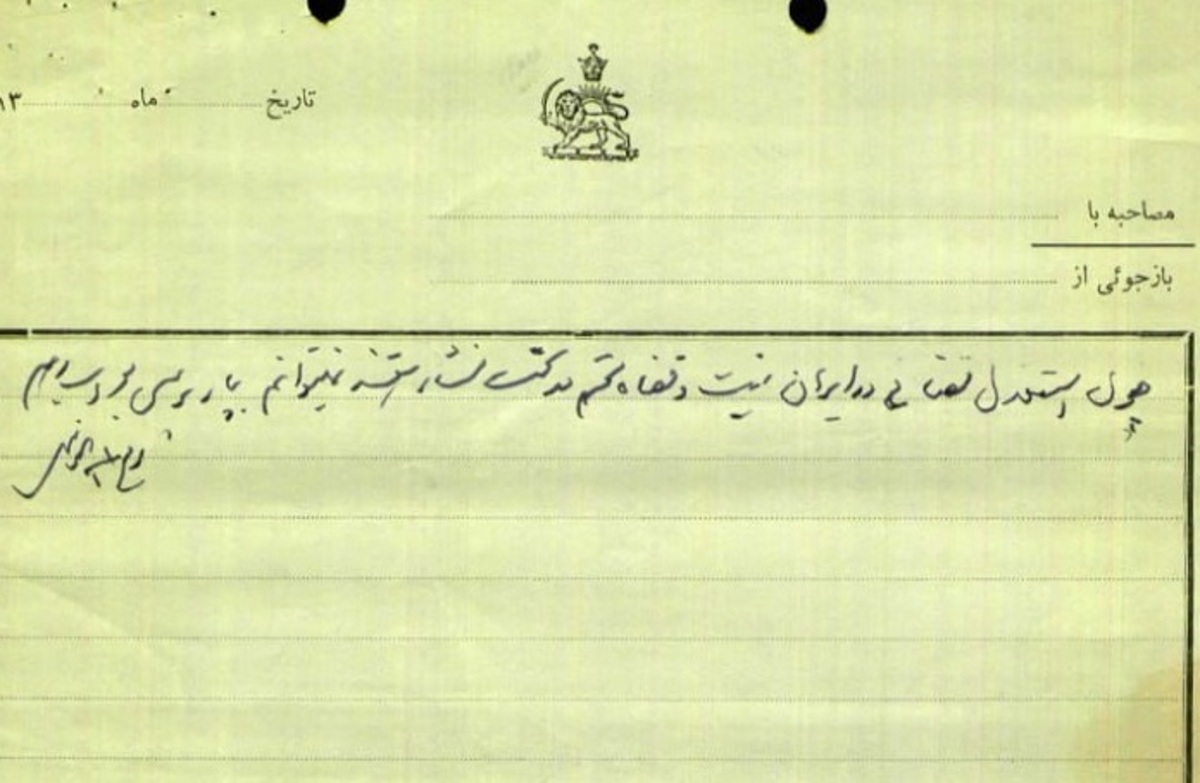 تاریخ ............ ماه ............ ۱۳
مصاحبه با
بازجوئی از
چون استقلال قضائی در ایران نیست و قضاة محترم در تحت فشار هستند نمیتوانم ببازپرسی جواب بدهم
روح الله الخمینی